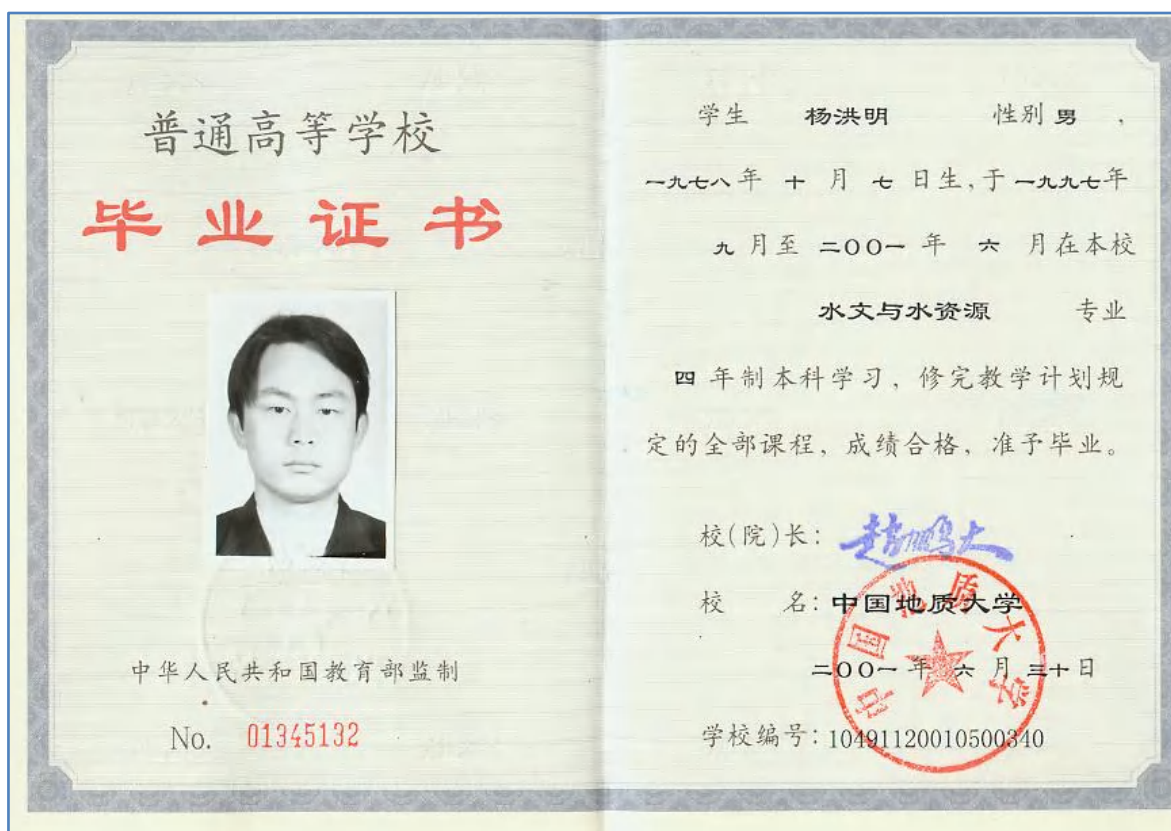 普通高等学校
毕业证书
中华人民共和国教育部监制
No. 01345132
学生 杨洪明 性别 男 ，
一九七八年 十 月 七 日生，于一九九七年
九 月至 二〇〇一 年 六 月在本校
水文与水资源 专业
四 年制本科学习，修完教学计划规
定的全部课程，成绩合格，准予毕业。
校(院)长：赵鹏大
校 名：中国地质大学
中国地质大学
二〇〇一年 六 月 三十日
学校编号：104911200105003​40